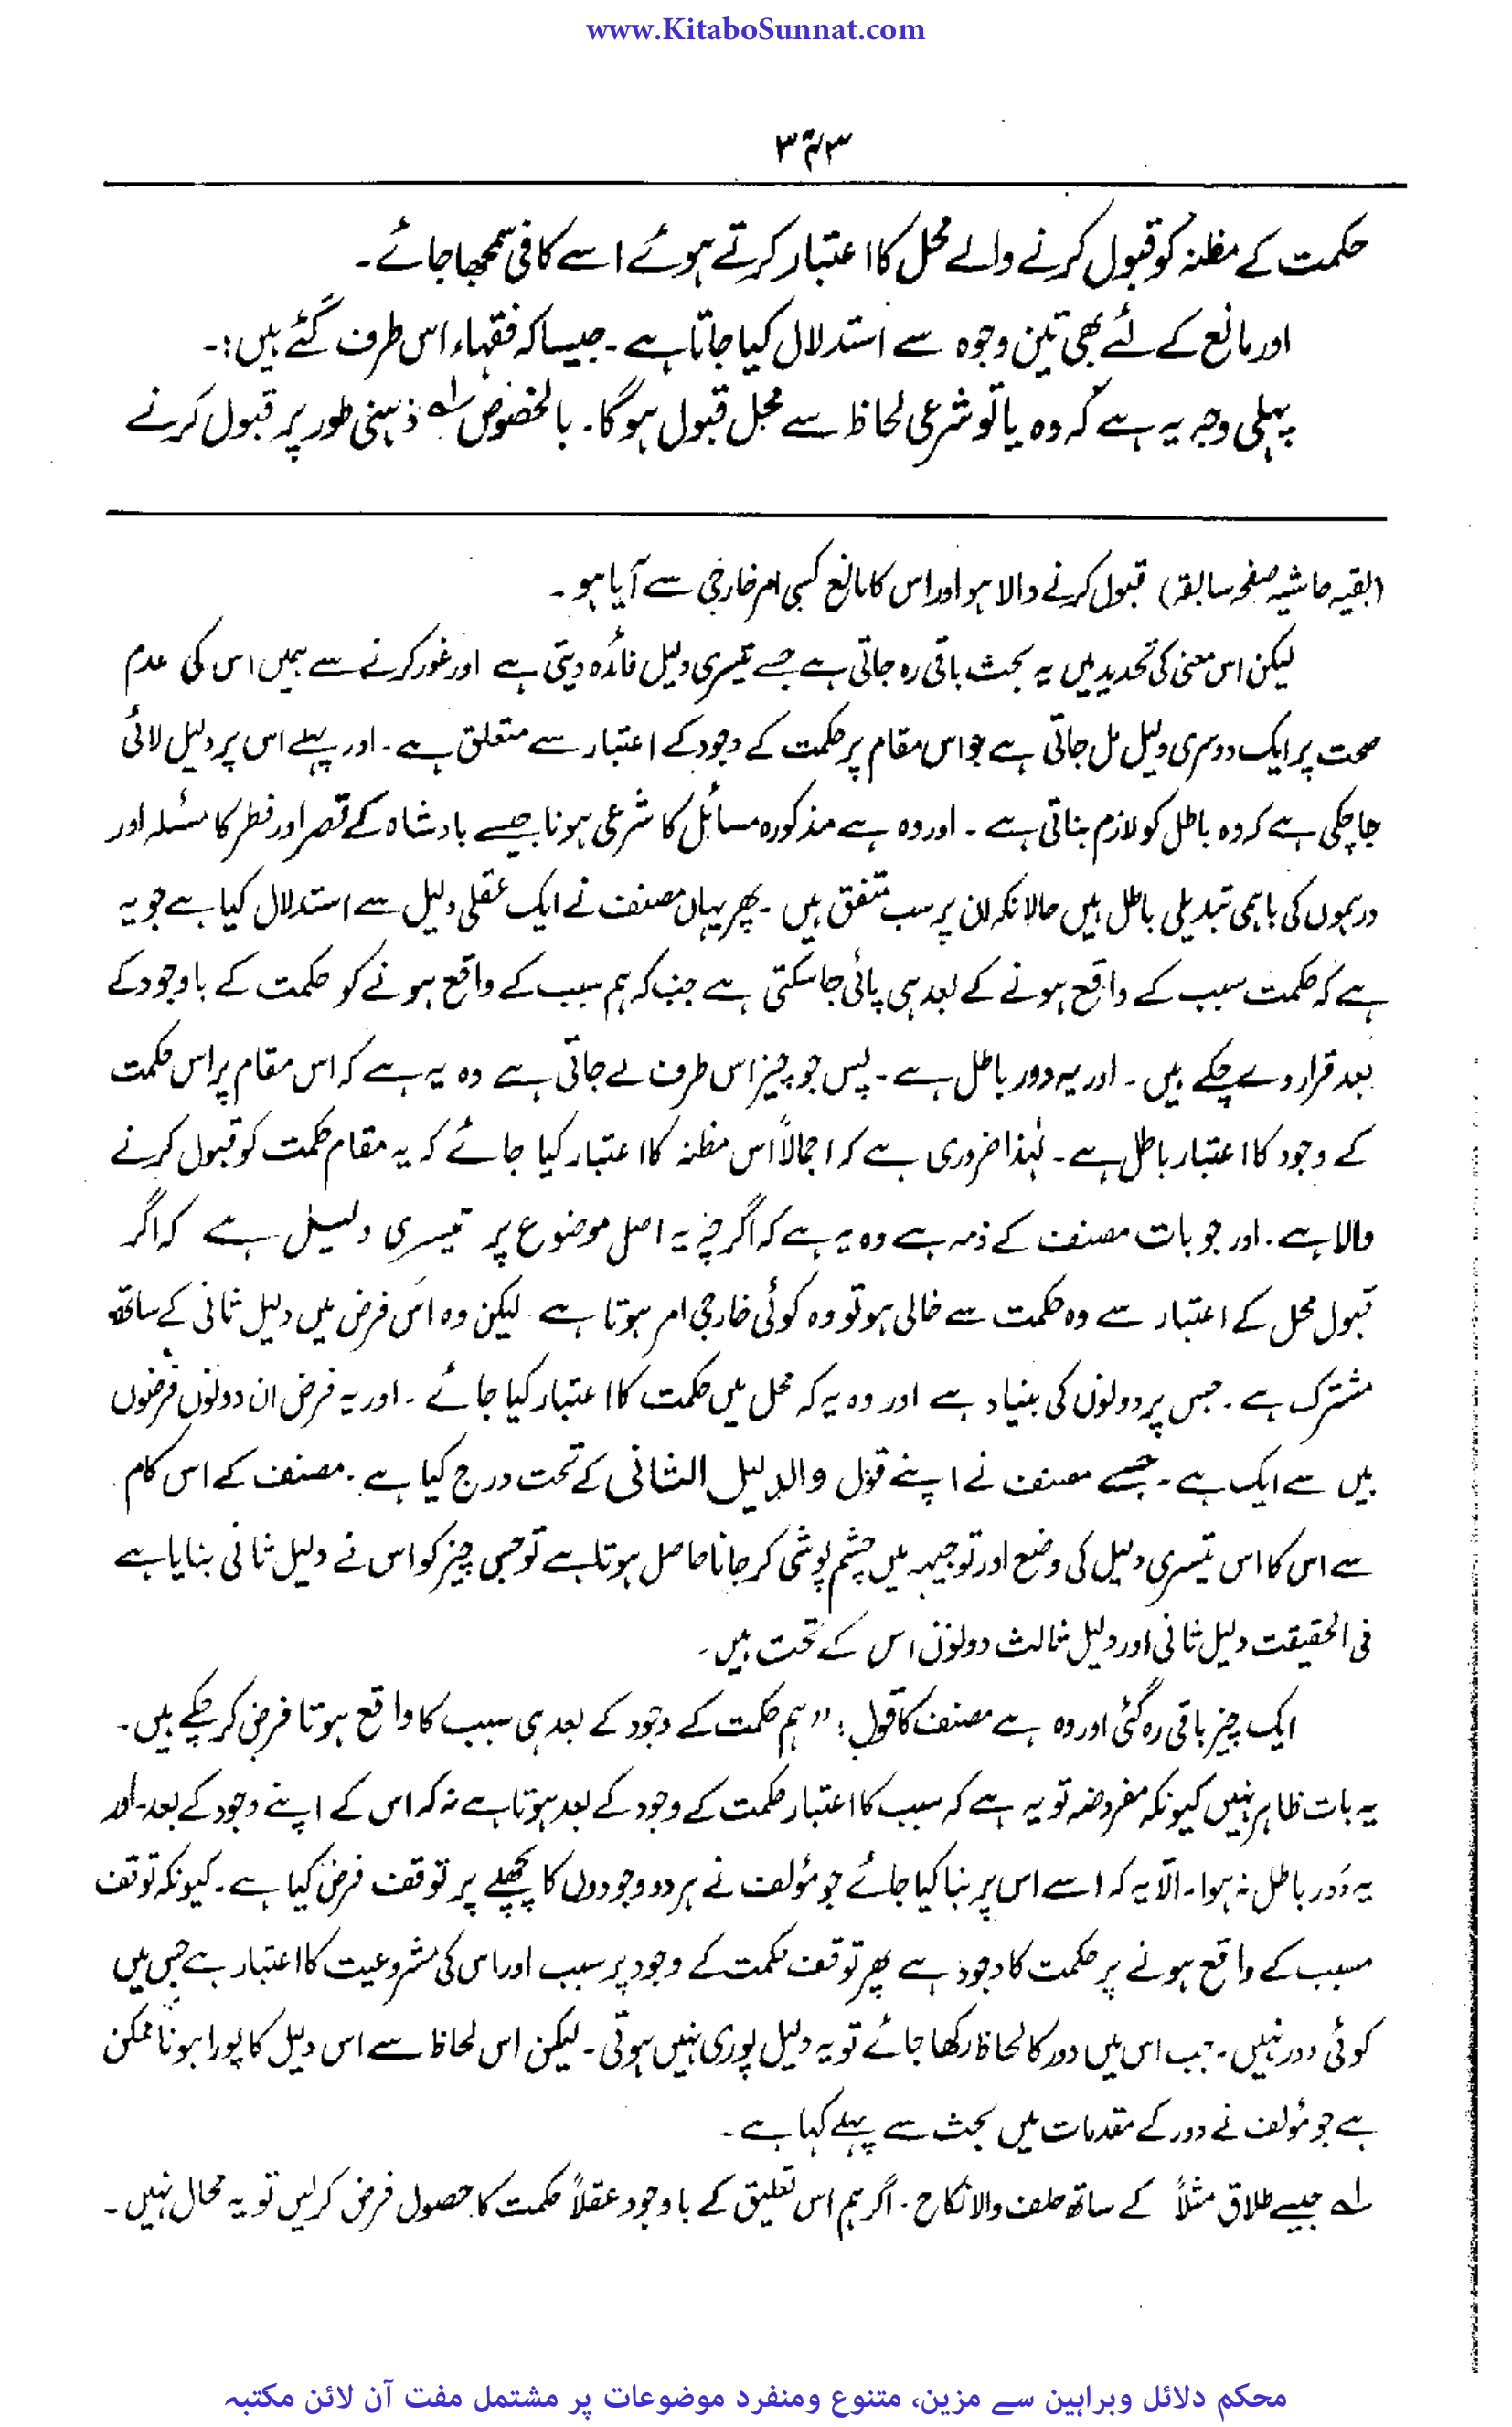 www.KitaboSunnat.com
۳۷۳
حکمت کے مظنہ کو قبول کرنے والے محل کا اعتبار کرتے ہوئے اسے کافی سمجھا جائے۔
اور مانع کے لئے بھی تین وجوہ سے استدلال کیا جاتا ہے۔ جیسا کہ فقہاء اس طرف گئے ہیں:۔
پہلی وجہ یہ ہے کہ وہ یا تو شرعی لحاظ سے محل قبول ہوگا۔ بالخصوص لہ ذہنی طور پر قبول کرنے
(بقیہ حاشیہ صفحہ سابقہ) قبول کرنے والا ہو اور اس کا مانع کسی امر خارجی سے آیا ہو۔
لیکن اس معنی کی تحدید میں یہ بحث باقی رہ جاتی ہے جسے تیسری دلیل فائدہ دیتی ہے اور غور کرنے سے ہمیں اس کی عدم
صحت پر ایک دوسری دلیل مل جاتی ہے جو اس مقام پر حکمت کے وجود کے اعتبار سے متعلق ہے۔ اور پہلے اس پر دلیل لائی
جا چکی ہے کہ وہ باطل کو لازم بناتی ہے۔ اور وہ ہے مذکورہ مسائل کا شرعی ہونا جیسے بادشاہ کے قصر اور فطر کا مسئلہ اور
درہموں کی باہمی تبدیلی باطل ہیں حالانکہ ان پر سب متفق ہیں۔ پھر یہاں مصنف نے ایک عقلی دلیل سے استدلال کیا ہے جو یہ
ہے کہ حکمت سبب کے واقع ہونے کے بعد ہی پائی جا سکتی ہے جب کہ ہم سبب کے واقع ہونے کو حکمت کے باوجود کے
بعد قرار دے چکے ہیں۔ اور یہ دور باطل ہے۔ پس جو چیز اس طرف لے جاتی ہے وہ یہ ہے کہ اس مقام پر اس حکمت
کے وجود کا اعتبار باطل ہے۔ لہٰذا ضروری ہے کہ اجمالاً اس مظنہ کا اعتبار کیا جائے کہ یہ مقام حکمت کو قبول کرنے
والا ہے۔ اور جو بات مصنف کے ذمہ ہے وہ یہ ہے کہ اگرچہ یہ اصل موضوع پر تیسری دلیل ہے کہ اگر
قبول محل کے اعتبار سے وہ حکمت سے خالی ہو تو وہ کوئی خارجی امر ہوتا ہے لیکن وہ اس فرض میں دلیل ثانی کے ساتھ
مشترک ہے۔ جس پر دونوں کی بنیاد ہے اور وہ یہ کہ محل میں حکمت کا اعتبار کیا جائے۔ اور یہ فرض ان دونوں فرضوں
میں سے ایک ہے۔ جسے مصنف نے اپنے قول والدلیل الثانی کے تحت درج کیا ہے۔ مصنف کے اس کام
سے اس کا اس تیسری دلیل کی وضع اور توجیہہ میں چشم پوشی کر جانا حاصل ہوتا ہے تو جس چیز کو اس نے دلیل ثانی بنایا ہے
فی الحقیقت دلیل ثانی اور دلیل ثالث دونوں اس کے تحت ہیں۔
ایک چیز باقی رہ گئی اور وہ ہے مصنف کا قول: "ہم حکمت کے وجود کے بعد ہی سبب کا واقع ہونا فرض کر چکے ہیں۔
یہ بات ظاہر نہیں کیونکہ مفروضہ تو یہ ہے کہ سبب کا اعتبار حکمت کے وجود کے بعد ہوتا ہے نہ کہ اس کے اپنے وجود کے بعد۔ اور
یہ دَور باطل نہ ہوا۔ الّا یہ کہ اسے اس پر بنا کیا جائے جو مؤلف نے ہر دو وجودوں کا پچھلے پر توقف فرض کیا ہے۔ کیونکہ توقف
مسبب کے واقع ہونے پر حکمت کا وجود ہے پھر توقف حکمت کے وجود پر سبب اور اس کی مشروعیت کا اعتبار ہے جس میں
کوئی دور نہیں۔ جب اس میں دور کا لحاظ رکھا جائے تو یہ دلیل پوری نہیں ہوتی۔ لیکن اس لحاظ سے اس دلیل کا پورا ہونا ممکن
ہے جو مؤلف نے دور کے مقدمات میں بحث سے پہلے کہا ہے۔
لہ جیسے طلاق مثلاً کے ساتھ حلف والا نکاح۔ اگر ہم اس تعلیق کے باوجود عقلاً حکمت کا حصول فرض کر لیں تو یہ محال نہیں۔
محکم دلائل وبراہین سے مزین، متنوع ومنفرد موضوعات پر مشتمل مفت آن لائن مکتبہ